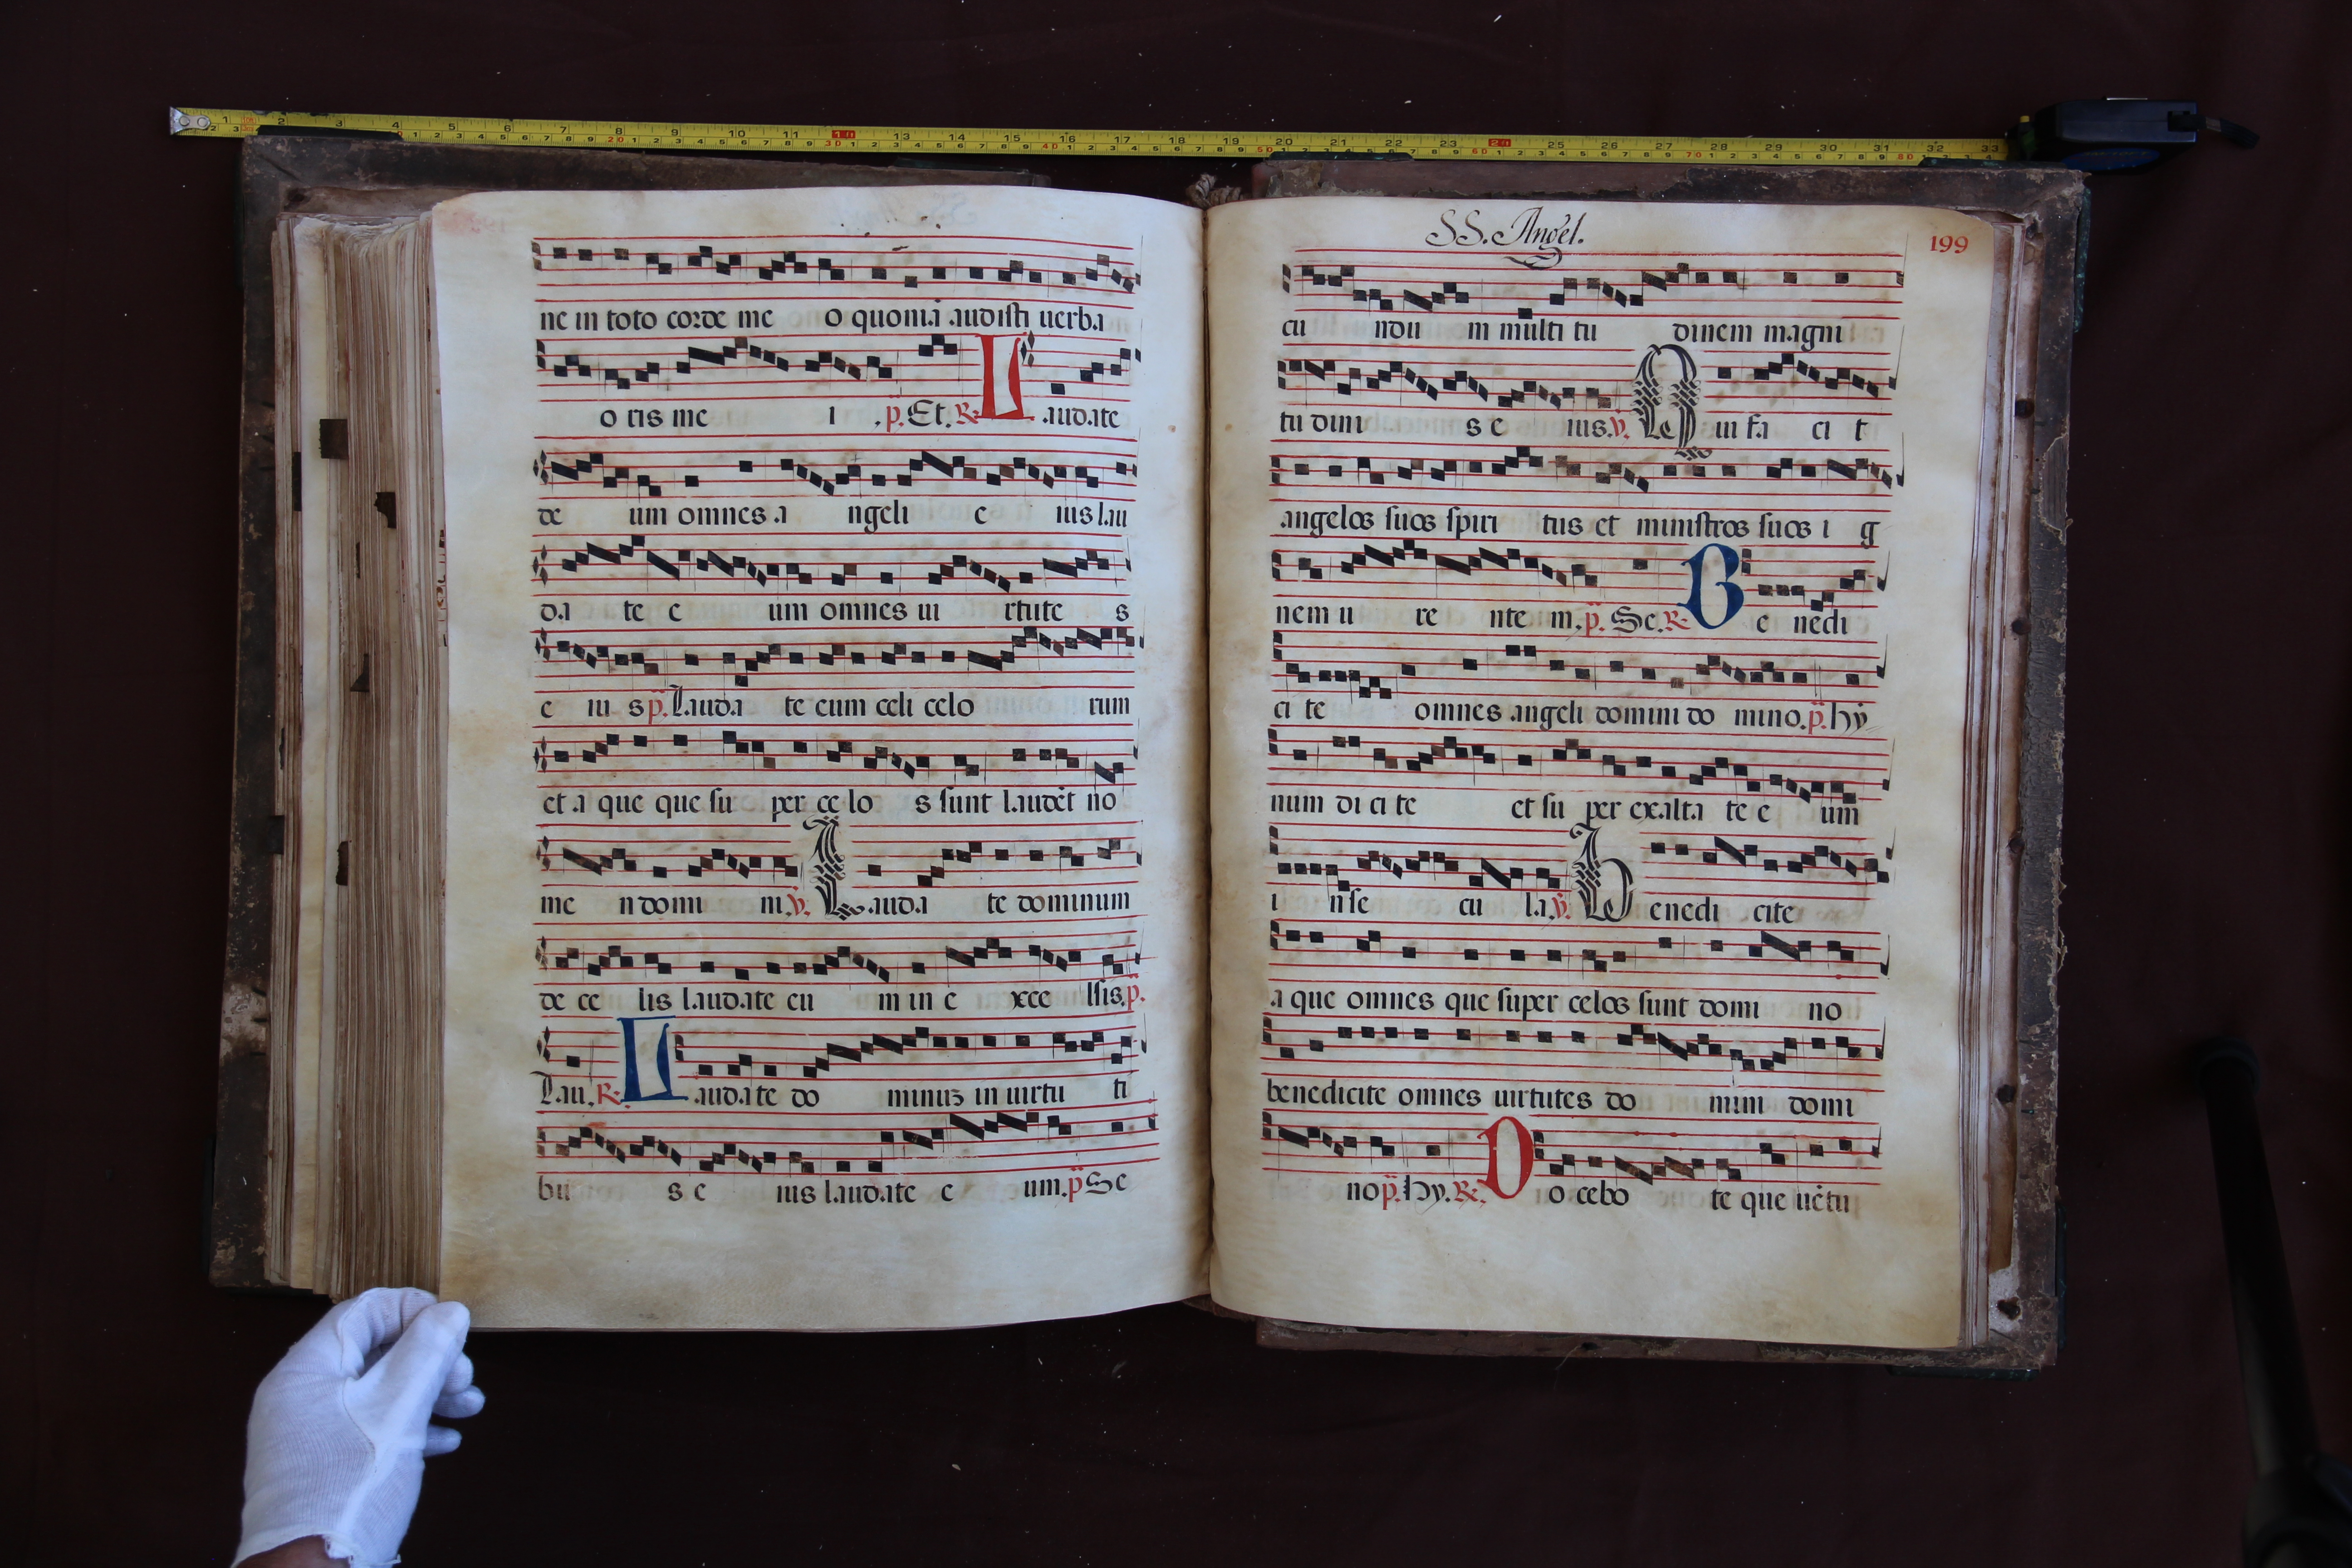 ne in toto corde me o quoniā audisti uerba
o ris me i .p. Et. R. Laudate
de um omnes a ngeli e ius lau
da te e um omnes ui rtute s
e iu s p. Lauda te eum celi celo rum
et a que que su per ce lo s sunt laudēt no
me n domi ni. v. Lauda te dominum
de ce lis laudate eu m in e xce lsis. p.
Lau. R. Laudate do minuz in uirtu ti
bu s e ius laudate e um. p Se
SS. Angel.
199
cu ndu m multi tu dinem magni
tu dini s e ius. v. Le Qui fa ci t
angelos suos spiri tus et ministros suos i g
nem u re nte m. p. Se. R. Be nedi
ci te omnes angeli domini do mino. p. hÿ
num di ci te et su per exalta te e um
i n se cu la. v. Benedi cite
a que omnes que super celos sunt domi no
benedicite omnes uirtutes do mini domi
no p. Hy. R. Do cebo te que uētu